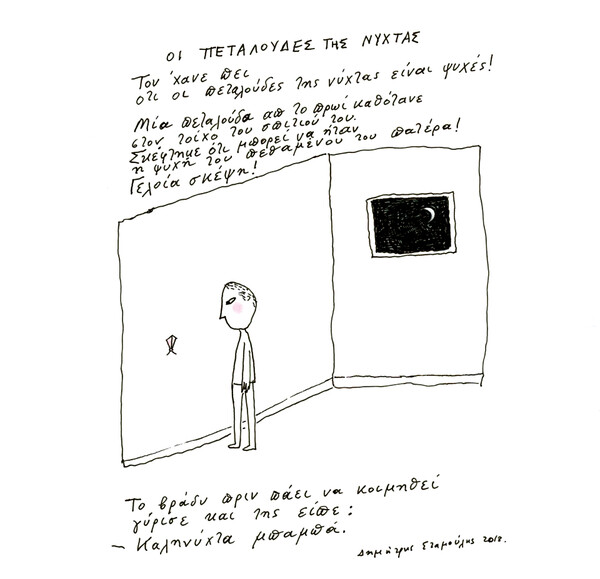 ΟΙ ΠΕΤΑΛΟΥΔΕΣ ΤΗΣ ΝΥΧΤΑΣ
Του 'χανε πει
ότι οι πεταλούδες της νύχτας είναι ψυχές!
Μία πεταλούδα απ το πρωί καθότανε
στον τοίχο του σπιτιού του.
Σκέφτηκε ότι μπορεί να ήταν
η ψυχή του πεθαμένου του πατέρα!
Γελοία σκέψη!
Το βράδυ πριν πάει να κοιμηθεί
γύρισε και της είπε:
– Καληνύχτα μπαμπά.
Δημήτρης Σταμούλης 2018.